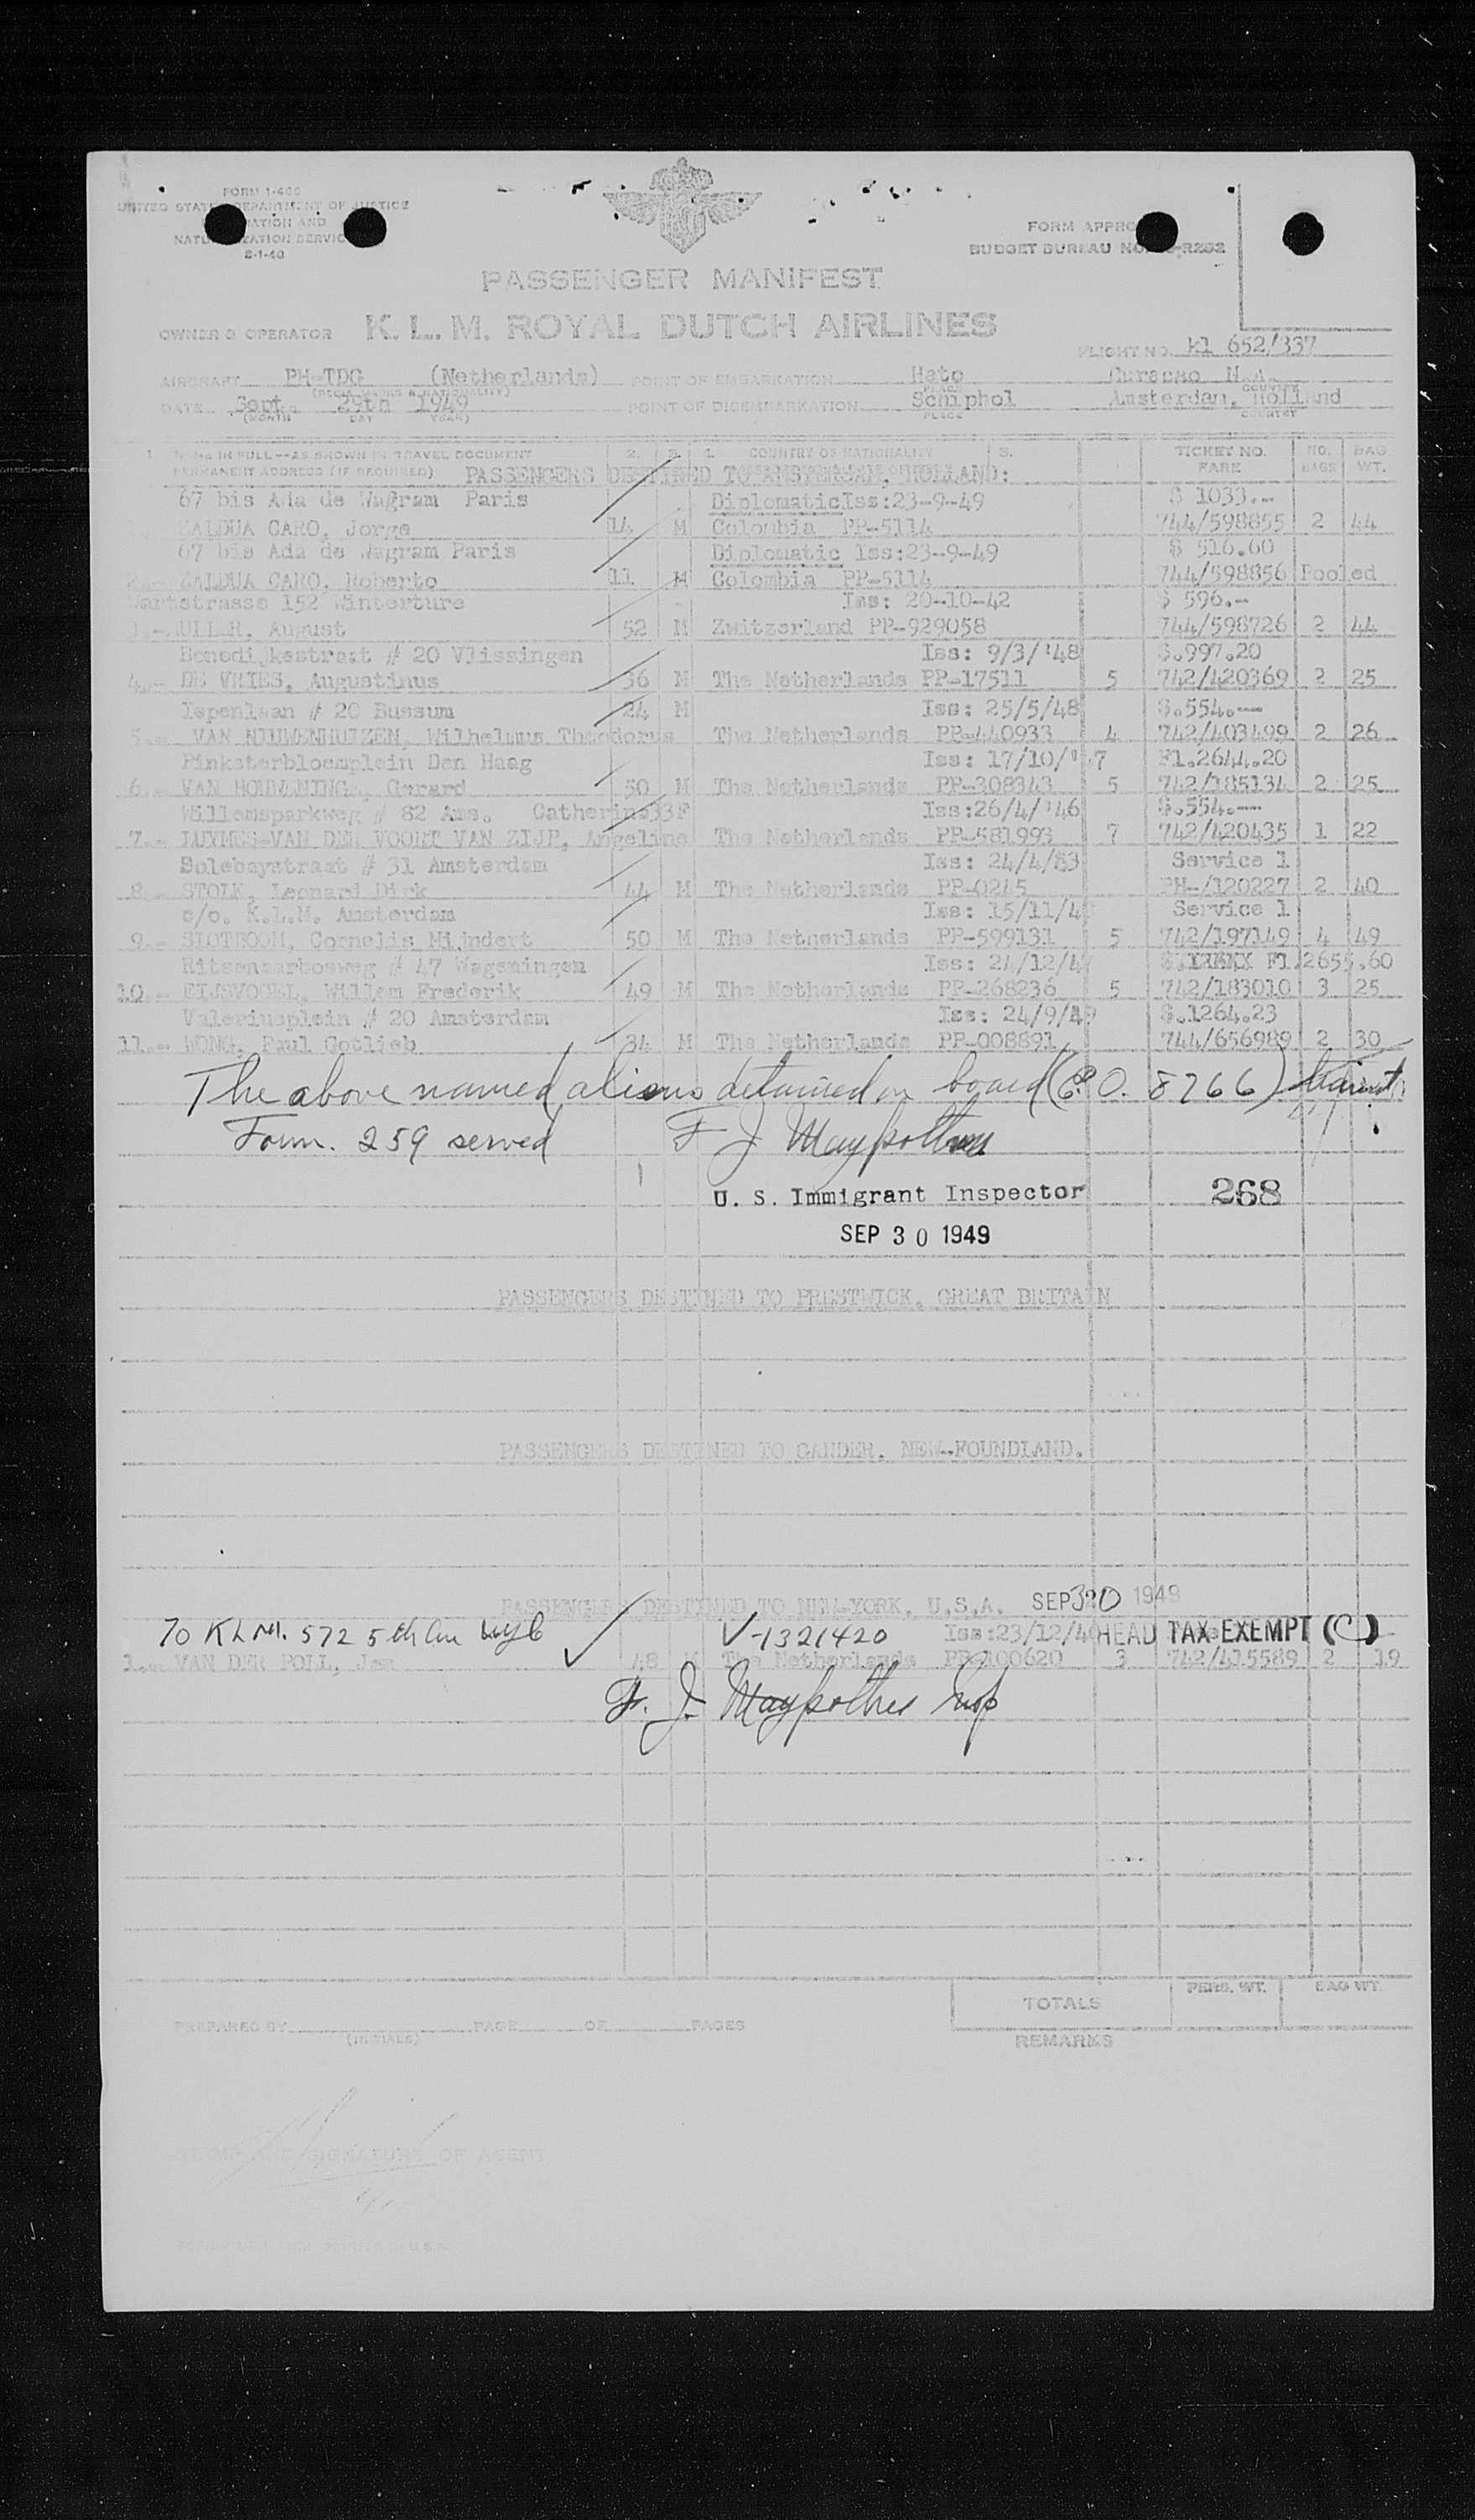 FORM 1-466
UNITED STATES DEPARTMENT OF JUSTICE
AND
SERVICE
FORM
BUDGET BUREAU NO.
PASSENGER MANIFEST
OWNER & OPERATOR K. L. M. ROYAL DUTCH AIRLINES
FLIGHT NO. Kl 652/337
AIRCRAFT PH-TDG (Netherlands) POINT OF EMBARKATION Hato Curacao N.A.
DATE Sept. 29th 1949 POINT OF DISEMBARKATION Schiphol Amsterdam, Holland
(MONTH DAY YEAR) PLACE COUNTRY
1. NAME IN FULL--AS SHOWN IN TRAVEL DOCUMENT 2. 3. 4. COUNTRY OF NATIONALITY 5. TICKET NO. NO. BAG
PERMANENT ADDRESS (IF REQUIRED) PASSENGERS DESTINED TO AMSTERDAM, HOLLAND: FARE BAGS WT.
67 bis Ada de Wagram Paris Diplomatic Iss:23-9-49 $ 1033.--
ZALDUA CARO, Jorge 14 M Colombia PP-5114 744/598855 2 44
67 bis Ada de Wagram Paris Diplomatic Iss:23-9-49 $ 516.60
2.- ZALDUA CARO, Roberto 11 M Colombia PP-5114 744/598856 Pooled
Wartstrasse 152 Winterture Iss: 20-10-42 $ 596.-
August 52 M Zwitzerland PP-929058 744/598726 2 44
Benedijkestraat # 20 Vlissingen Iss: 9/3/'48 $.997.20
4.- DE VRIES, Augustinus 36 M The Netherlands PP-17511 5 742/420369 2 25
Iepenlaan # 20 Bussum 24 M Iss: 25/5/48 $.554.--
5.- VAN NIUWENHUIZEN, Wilhelmus Theodorus The Netherlands PP-440933 4 742/403499 2 26
Pinksterbloemplein Den Haag Iss: 17/10/'47 Fl.2644.20
6.- Gerard 50 M The Netherlands PP-308343 5 742/185134 2 25
Willemsparkweg # 82 Ams. Catherina 33 F Iss:26/4/'46 $.554.--
7.- LUYMES-VAN DER VOORT VAN ZIJP, Angelina The Netherlands PP-581993 7 742/420435 1 22
Solebaystraat # 31 Amsterdam Iss: 24/4/ Service 1
8.- STOLK, Leonard Dirk 44 M The Netherlands PP-0245 PH-/120227 2 40
c/o. K.L.M. Amsterdam Iss: 15/11/4 Service 1
9.- SLOTBOOM, Cornelis Mijndert 50 M The Netherlands PP-599131 5 742/197149 4 49
# 47 Wageningen Iss: 24/12/4 Fl.2655.60
10.- EIJSVOGEL, Willem Frederik 49 M The Netherlands PP-268236 5 742/183010 3 25
Valeriusplein # 20 Amsterdam Iss: 24/9/49 $.1264.23
11.- WONG, Paul Gotlieb 34 M The Netherlands PP-008891 744/656989 2 30
The above named aliens detained on board (E.O. 8766)
Form. 259 served F J Maypother
U. S. Immigrant Inspector 268
SEP 30 1949
PASSENGERS DESTINED TO PRESTWICK, GREAT BRITAIN
PASSENGERS DESTINED TO GANDER, NEW-FOUNDLAND.
PASSENGERS DESTINED TO NEW-YORK, U.S.A. SEP 30 1949
To KLM. 572 5th Av nyc V-1321420 Iss:23/12/4 HEAD TAX EXEMPT (C)
1.- VAN DER POLL, Jan 48 M The Netherlands PP-100620 3 742/415589 2 19
F. J. Maypother
TOTALS PERS. WT. BAG WT.
PREPARED BY PAGE OF PAGES
(INITIALS) REMARKS
STAMP AND SIGNATURE OF AGENT